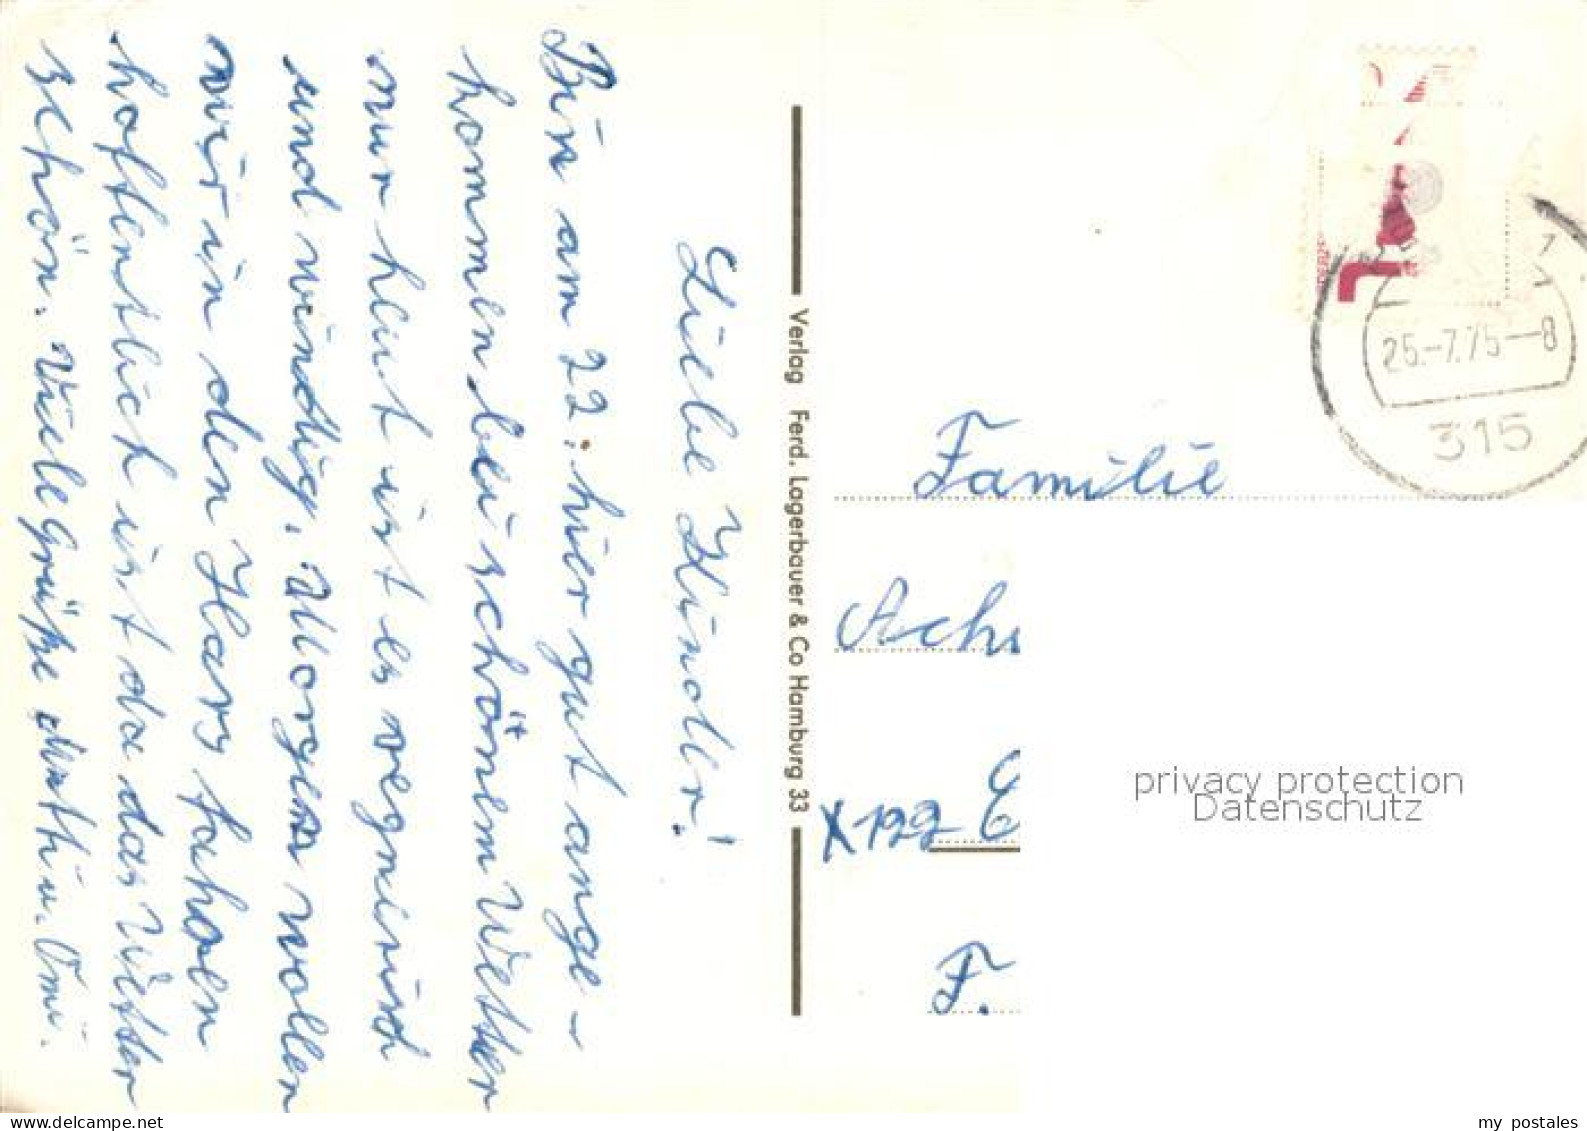 Liebe Kinder!
Bin am 22. hier gut ange-
kommen bei schönem Wetter
nur heut ist es regnerisch
und windig. Morgen wollen
wir in den Harz fahren
hoffentlich ist da das Wetter
schön. Viele Grüße Mutti u. Omi.
Verlag Ferd. Lagerbauer & Co Hamburg 33
25.-7.75-8
315
Familie
Ach
X 122
F.
privacy protection
Datenschutz
my postales